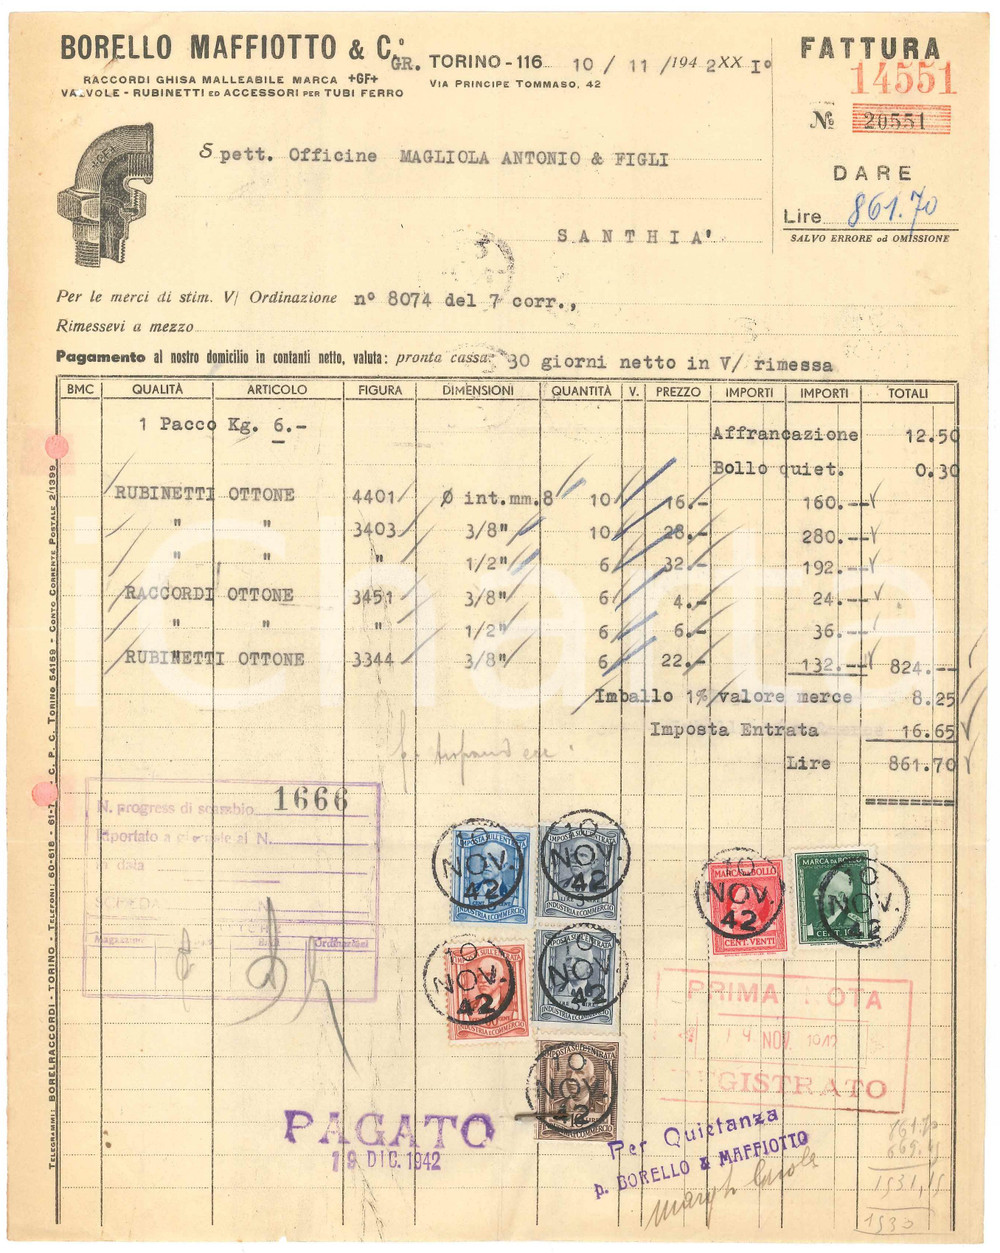 BORELLO MAFFIOTTO & C.°
RACCORDI GHISA MALLEABILE MARCA +GF+
VALVOLE - RUBINETTI ED ACCESSORI PER TUBI FERRO
GR. TORINO - 116 10 / 11 /1942 XX I°
VIA PRINCIPE TOMMASO, 42
FATTURA
14551
№ 20551
DARE
Lire 861.70
SALVO ERRORE od OMISSIONE
Spett. Officine MAGLIOLA ANTONIO & FIGLI
SANTHIA'
Per le merci di stim. V/ Ordinazione n° 8074 del 7 corr.,
Rimessevi a mezzo
Pagamento al nostro domicilio in contanti netto, valuta: pronta cassa: 30 giorni netto in V/ rimessa
BMC QUALITÀ ARTICOLO FIGURA DIMENSIONI QUANTITÀ V. PREZZO IMPORTI IMPORTI TOTALI
1 Pacco Kg. 6.-
Affrancazione 12.50
Bollo quiet. 0.30
RUBINETTI OTTONE 4401 Ø int.mm.8 10 16.- 160.--
" " 3403 3/8" 10 28.- 280.--
" " " 1/2" 6 32.- 192.--
RACCORDI OTTONE 3451 3/8" 6 4.- 24.--
" " " 1/2" 6 6.- 36.--
RUBINETTI OTTONE 3344 3/8" 6 22.- 132.-- 824.--
Imballo 1% valore merce 8.25
Imposta Entrata 16.65
Lire 861.70
iCharta
TELEGRAMMI: BORELRACCORDI - TORINO - TELEFONI: 60-618 - 61-1 - C. P. C. TORINO 54169 - CONTO CORRENTE POSTALE 2/1399
N. progress di scambio 1666
Riportato a giornale al N.
in data
SCHEDA N.
Magazzini Ordinazioni
IMPOSTA SULL'ENTRATA
INDUSTRIA E COMMERCIO
10 NOV. 42
IMPOSTA SULL'ENTRATA
INDUSTRIA E COMMERCIO
10 NOV. 42
IMPOSTA SULL'ENTRATA
INDUSTRIA E COMMERCIO
10 NOV. 42
IMPOSTA SULL'ENTRATA
INDUSTRIA E COMMERCIO
10 NOV. 42
IMPOSTA SULL'ENTRATA
10 NOV. 42
MARCA DA BOLLO
CENT. VENTI
10 NOV. 42
MARCA DA BOLLO
CENT. 10
10 NOV. 42
PRIMA NOTA
14 NOV. 1942
REGISTRATO
PAGATO
19 DIC. 1942
Per Quietanza
p. BORELLO & MAFFIOTTO
861.70
1530